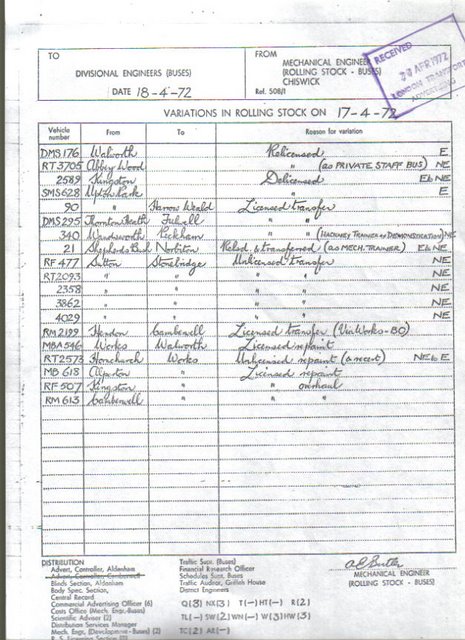 TO
DIVISIONAL ENGINEERS (BUSES)
DATE 18-4-72
FROM
MECHANICAL ENGINEER
(ROLLING STOCK - BUSES)
CHISWICK
Ref. 508/1
RECEIVED
20 APR 1972
LONDON TRANSPORT
ADVERTISING
VARIATIONS IN ROLLING STOCK ON 17-4-72
Vehicle number From To Reason for variation
DMS 176 Walworth Relicensed E
RT 3705 Abbey Wood " (as PRIVATE STAFF BUS) NE
2589 Kingston Delicensed E to NE
SMS 628 Upton Park " E
90 " Harrow Weald Licensed transfer
DMS 295 Thornton Heath Fulwell " "
340 Wandsworth Peckham " " (HACKNEY TRAINER or DEMONSTRATION) NE
21 Shepherds Bush Norbiton Relicd. & transferred (as MECH. TRAINER) E to NE
RF 477 Sutton Stonebridge Unlicensed transfer NE
RT 2093 " " " " NE
2358 " " " " NE
3862 " " " " NE
4029 " " " " NE
RM 2199 Hendon Camberwell Licensed transfer (Via Works - BO)
MBA 546 Works Walworth Licensed repaint
RT 2573 Hornchurch Works Unlicensed repaint (a recert) NE to E
MB 618 Alperton " Licensed repaint
RF 507 Kingston " " overhaul
RM 613 Camberwell " " "
DISTRIBUTION
Advert. Controller, Aldenham
Blinds Section, Aldenham
Body Spec. Section,
Central Record
Commercial Advertising Officer (6)
Costs Office (Mech. Engr.-Buses)
Scientific Adviser (2)
Distribution Services Manager
Mech. Engr. (Development-Buses) (2)
Traffic Supt. (Buses)
Financial Research Officer
Schedules Supt. Buses
Traffic Auditor, Griffith House
District Engineers
Q (3) NX (3) T (-) HT (-) R (2)
TL (-) SW (2) WN (-) W (3) HW (3)
TC (2) AR (-)
MECHANICAL ENGINEER
(ROLLING STOCK - BUSES)